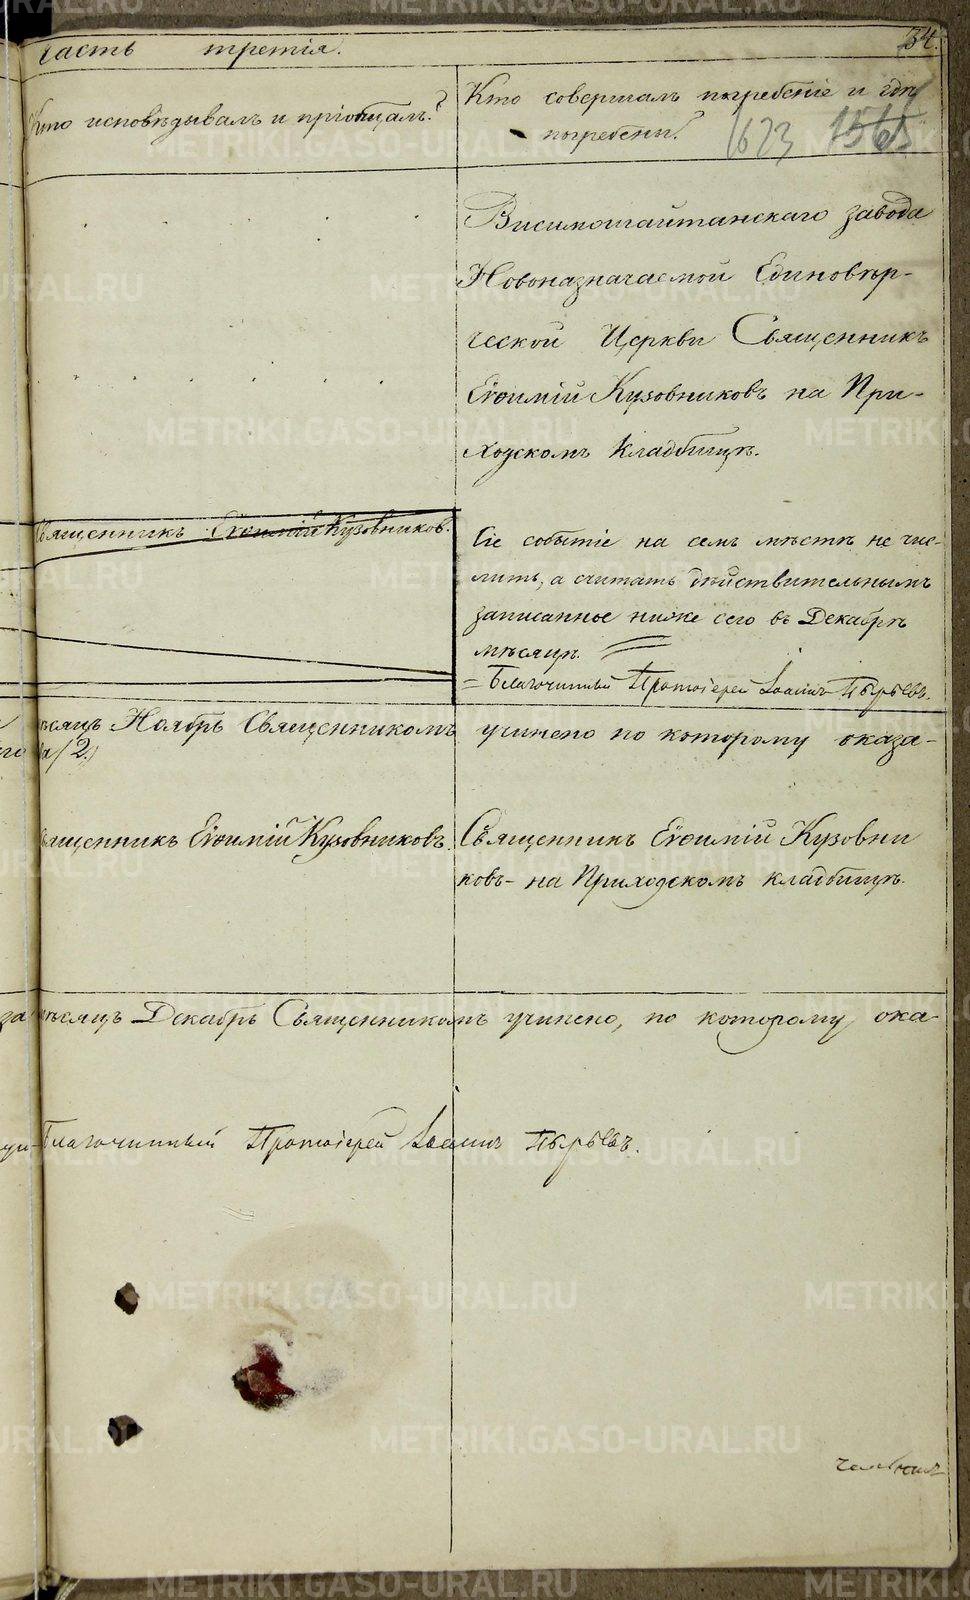 часть третія.
34.
Кто исповѣдывалъ и пріобщалъ?
Кто совершалъ погребеніе и гдѣ
погребены?
1623 1565
Висимошайтанскаго завода
Новоназначаемой Единовѣр-
ческой Церкви Священникъ
Евѳимій Кузовниковъ на При-
ходскомъ кладбищѣ.
Священникъ Евѳимій Кузовников.
Сіе событіе на семъ мѣстѣ не чис-
лить, а считать дѣйствительнымъ
записанное ниже сего въ Декабрѣ
мѣсяцѣ.
Благочинный Протоіерей Іоаннъ Пырьевъ.
мѣсяцъ Ноябрь Священникомъ учинено по которому оказа-
/2.)
Священникъ Евѳимій Кузовниковъ.
Священникъ Евѳимій Кузовни
ковъ - на Приходскомъ кладбищѣ.
за мѣсяцъ Декабрь Священникомъ учинено, по которому ока-
Благочинный Протоіерей Іоаннъ Пырьевъ.
METRIKI.GASO-URAL.RU